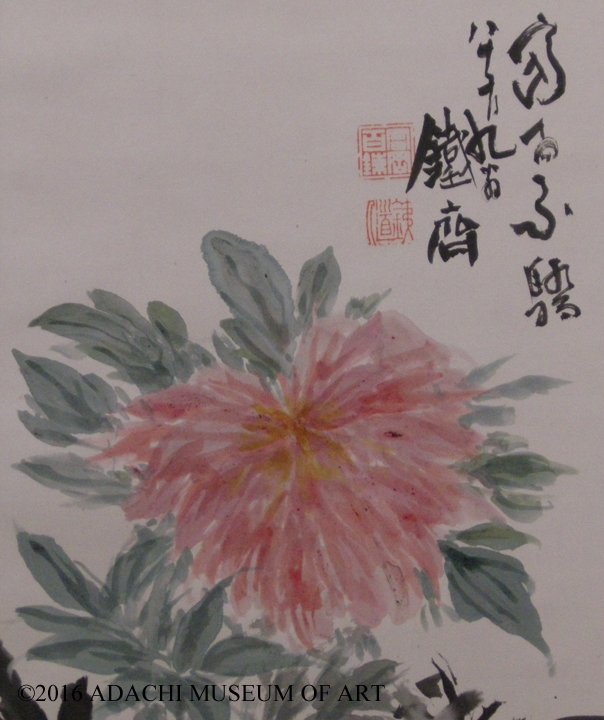 富而不驕
八十有九
鐵齋
©2016 ADACHI MUSEUM OF ART